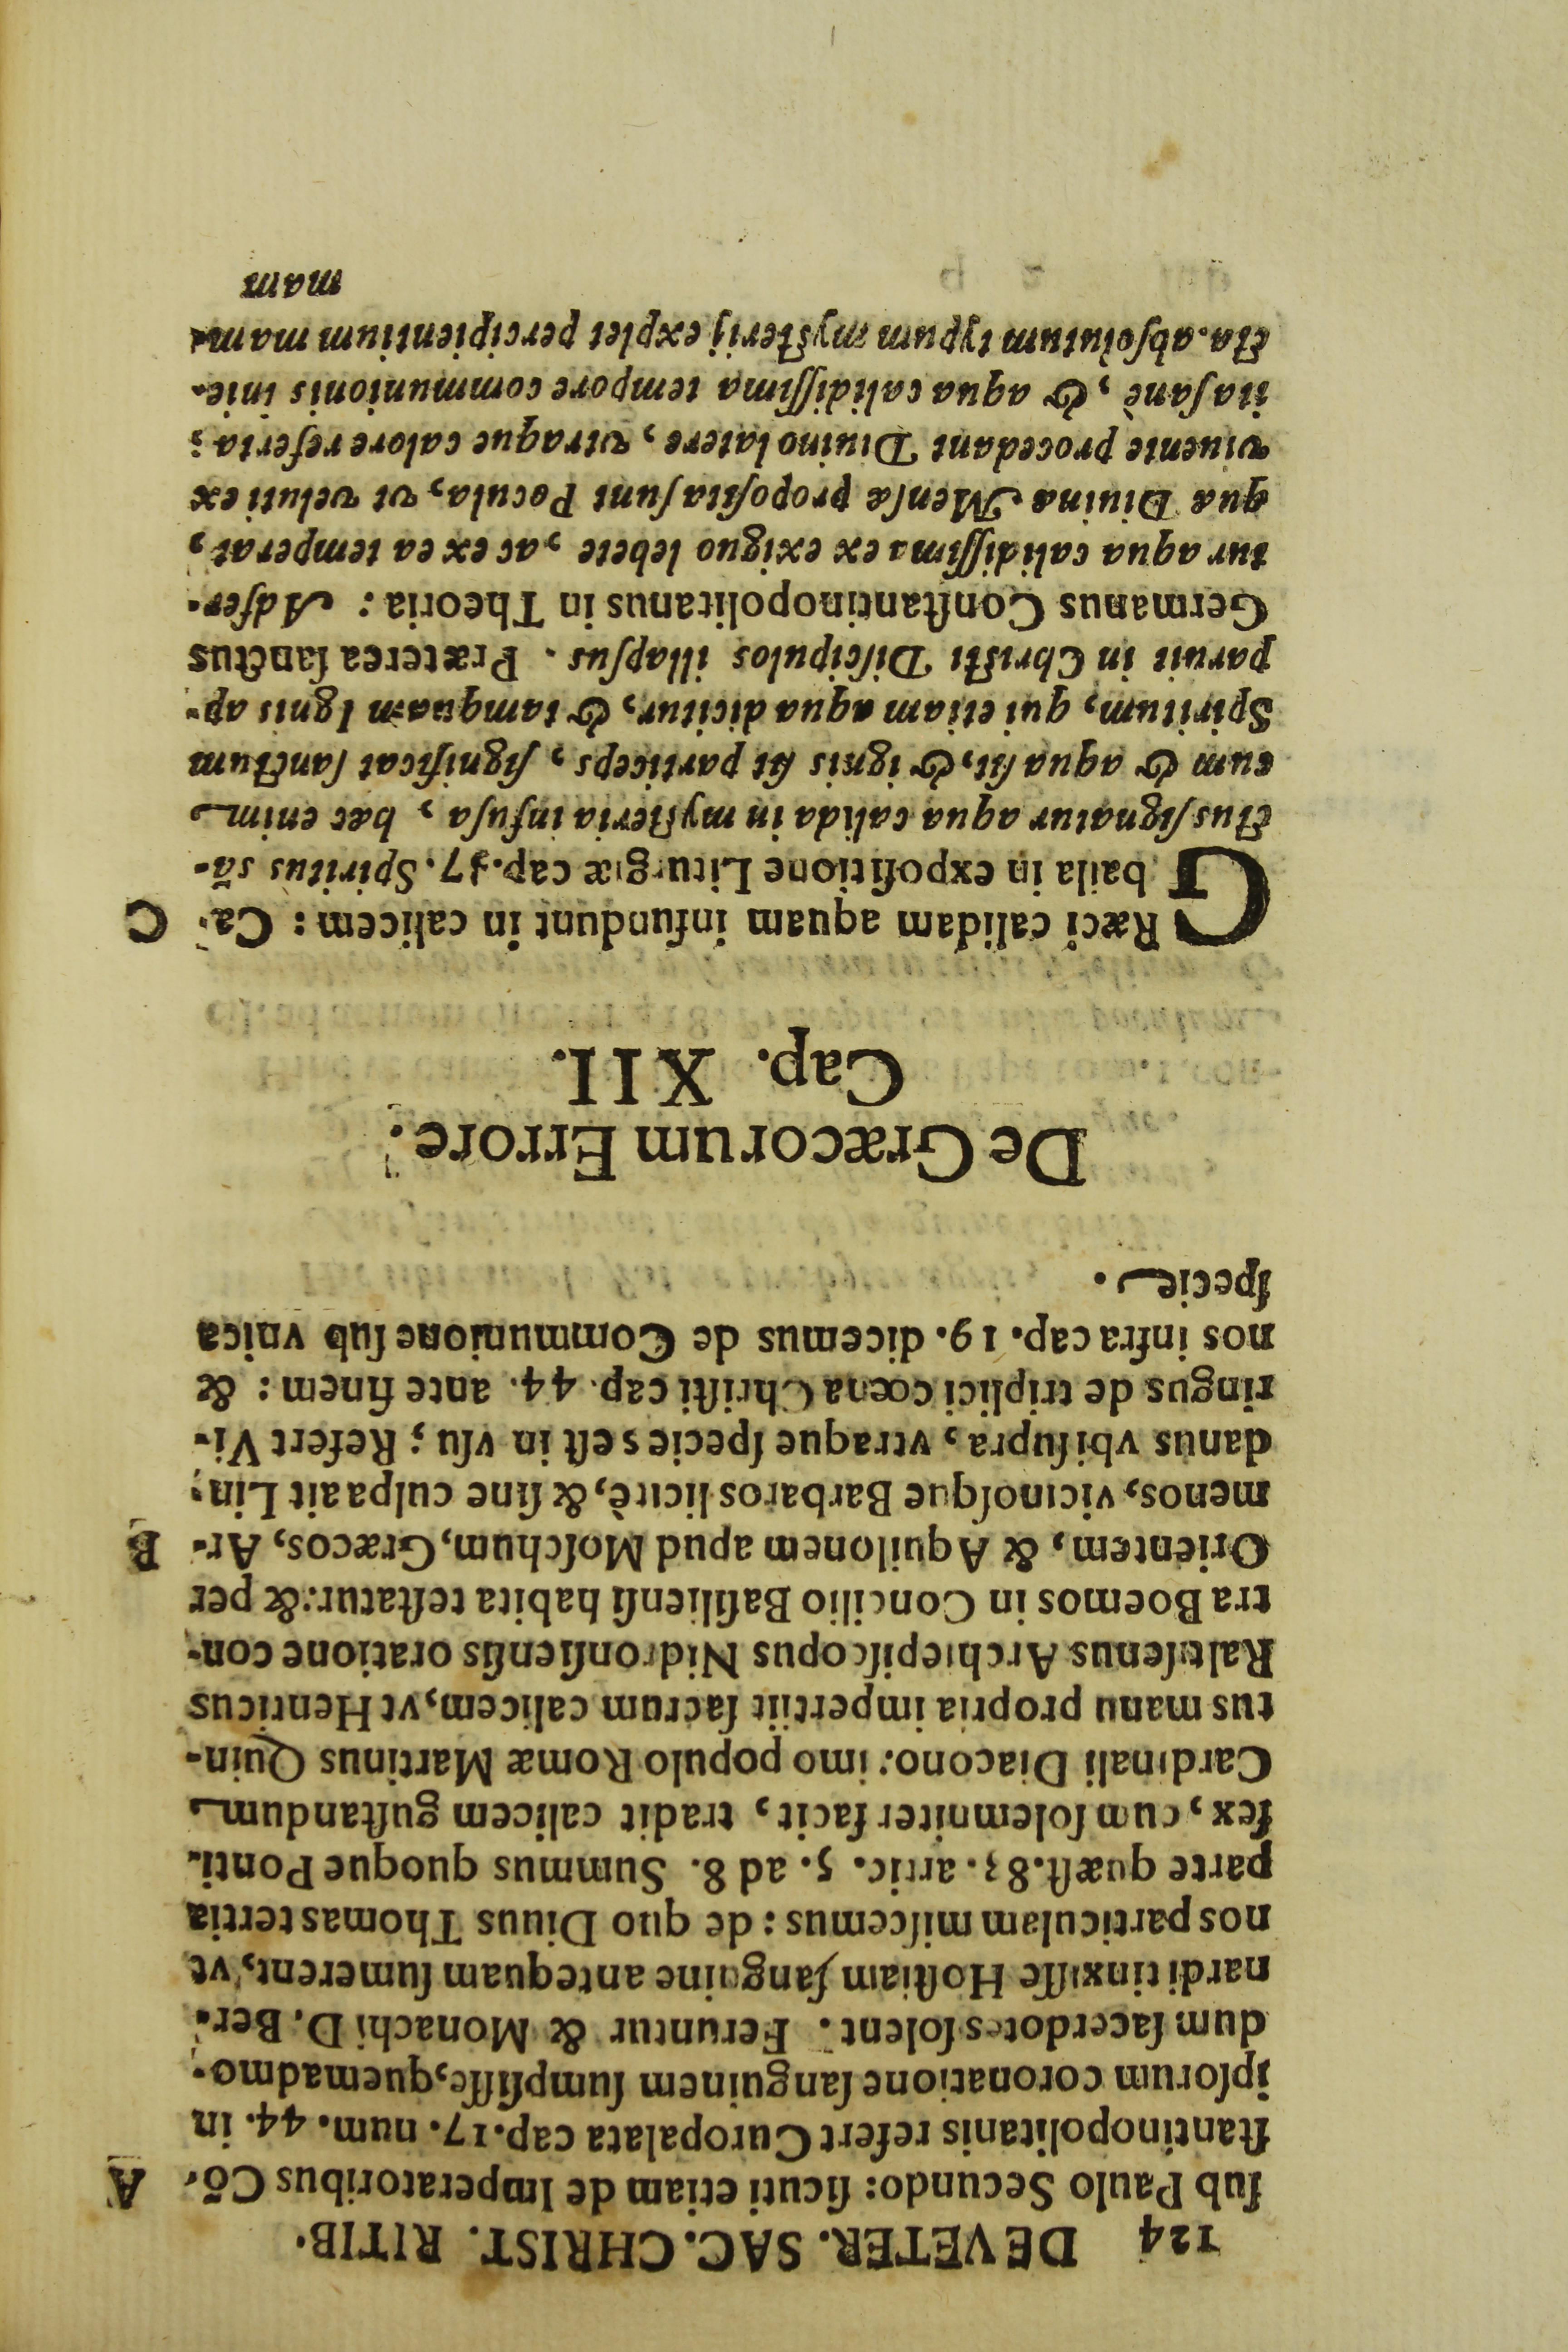 124 DE VETER. SAC. CHRIST. RITIB.
ſub Paulo Secundo: ſicuti etiam de Imperatoribus Cõ- A
ſtantinopolitanis refert Curopalata cap. 17. num. 44. in
ipſorum coronatione ſanguinem ſumpſiſſe, quemadmo-
dum ſacerdotes ſolent. Feruntur & Monachi D. Ber-
nardi tinxiſſe Hoſtiam ſanguine antequam ſumerent, vt
nos particulam miſcemus: de quo Diuus Thomas tertia
parte quæſt. 83. artic. 5. ad 8. Summus quoque Ponti-
fex, cum ſolemniter facit, tradit calicem guſtandum
Cardinali Diacono: imo populo Romæ Martinus Quin-
tus manu propria impertiit ſacrum calicem, vt Henricus
Kaltiſenus Archiepiſcopus Nidronſienſis oratione con-
tra Boemos in Concilio Baſilienſi habita teſtatur: & per
Orientem, & Aquilonem apud Moſchum, Græcos, Ar- B
menos, vicinoſque Barbaros licitè, & ſine culpa ait Lin-
danus vbi ſupra, vtraque ſpecies eſt in vſu; Refert Vi-
ringus de triplici cœna Chriſti cap. 44. ante finem: &
nos infra cap. 19. dicemus de Communione ſub vnica
ſpecie.
De Græcorum Errore.
Cap. XII.
GRæci calidam aquam infundunt in calicem: Ca- C
baſila in expoſitione Liturgiæ cap. 37. Spiritus sã-
ctus ſignatur aqua calida in myſteria infuſa, hæc enim
cum & aqua ſit, & ignis ſit particeps, ſignificat ſanctum
Spiritum, qui etiam aqua dicitur, & tamquam Ignis ap-
paruit in Chriſti Diſcipulos illapſus. Præterea ſanctus
Germanus Conſtantinopolitanus in Theoria: Adfer-
tur aqua calidiſſima ex exiguo lebete, ac ex ea temperat,
quæ Diuinæ Menſæ propoſita ſunt Pocula, vt veluti ex
viuente procedant Diuino latere, vtraque calore referta;
ita ſanè, & aqua calidiſſima tempore communionis inie-
cta. abſolutum typum myſterij explet percipientium mam-
mam